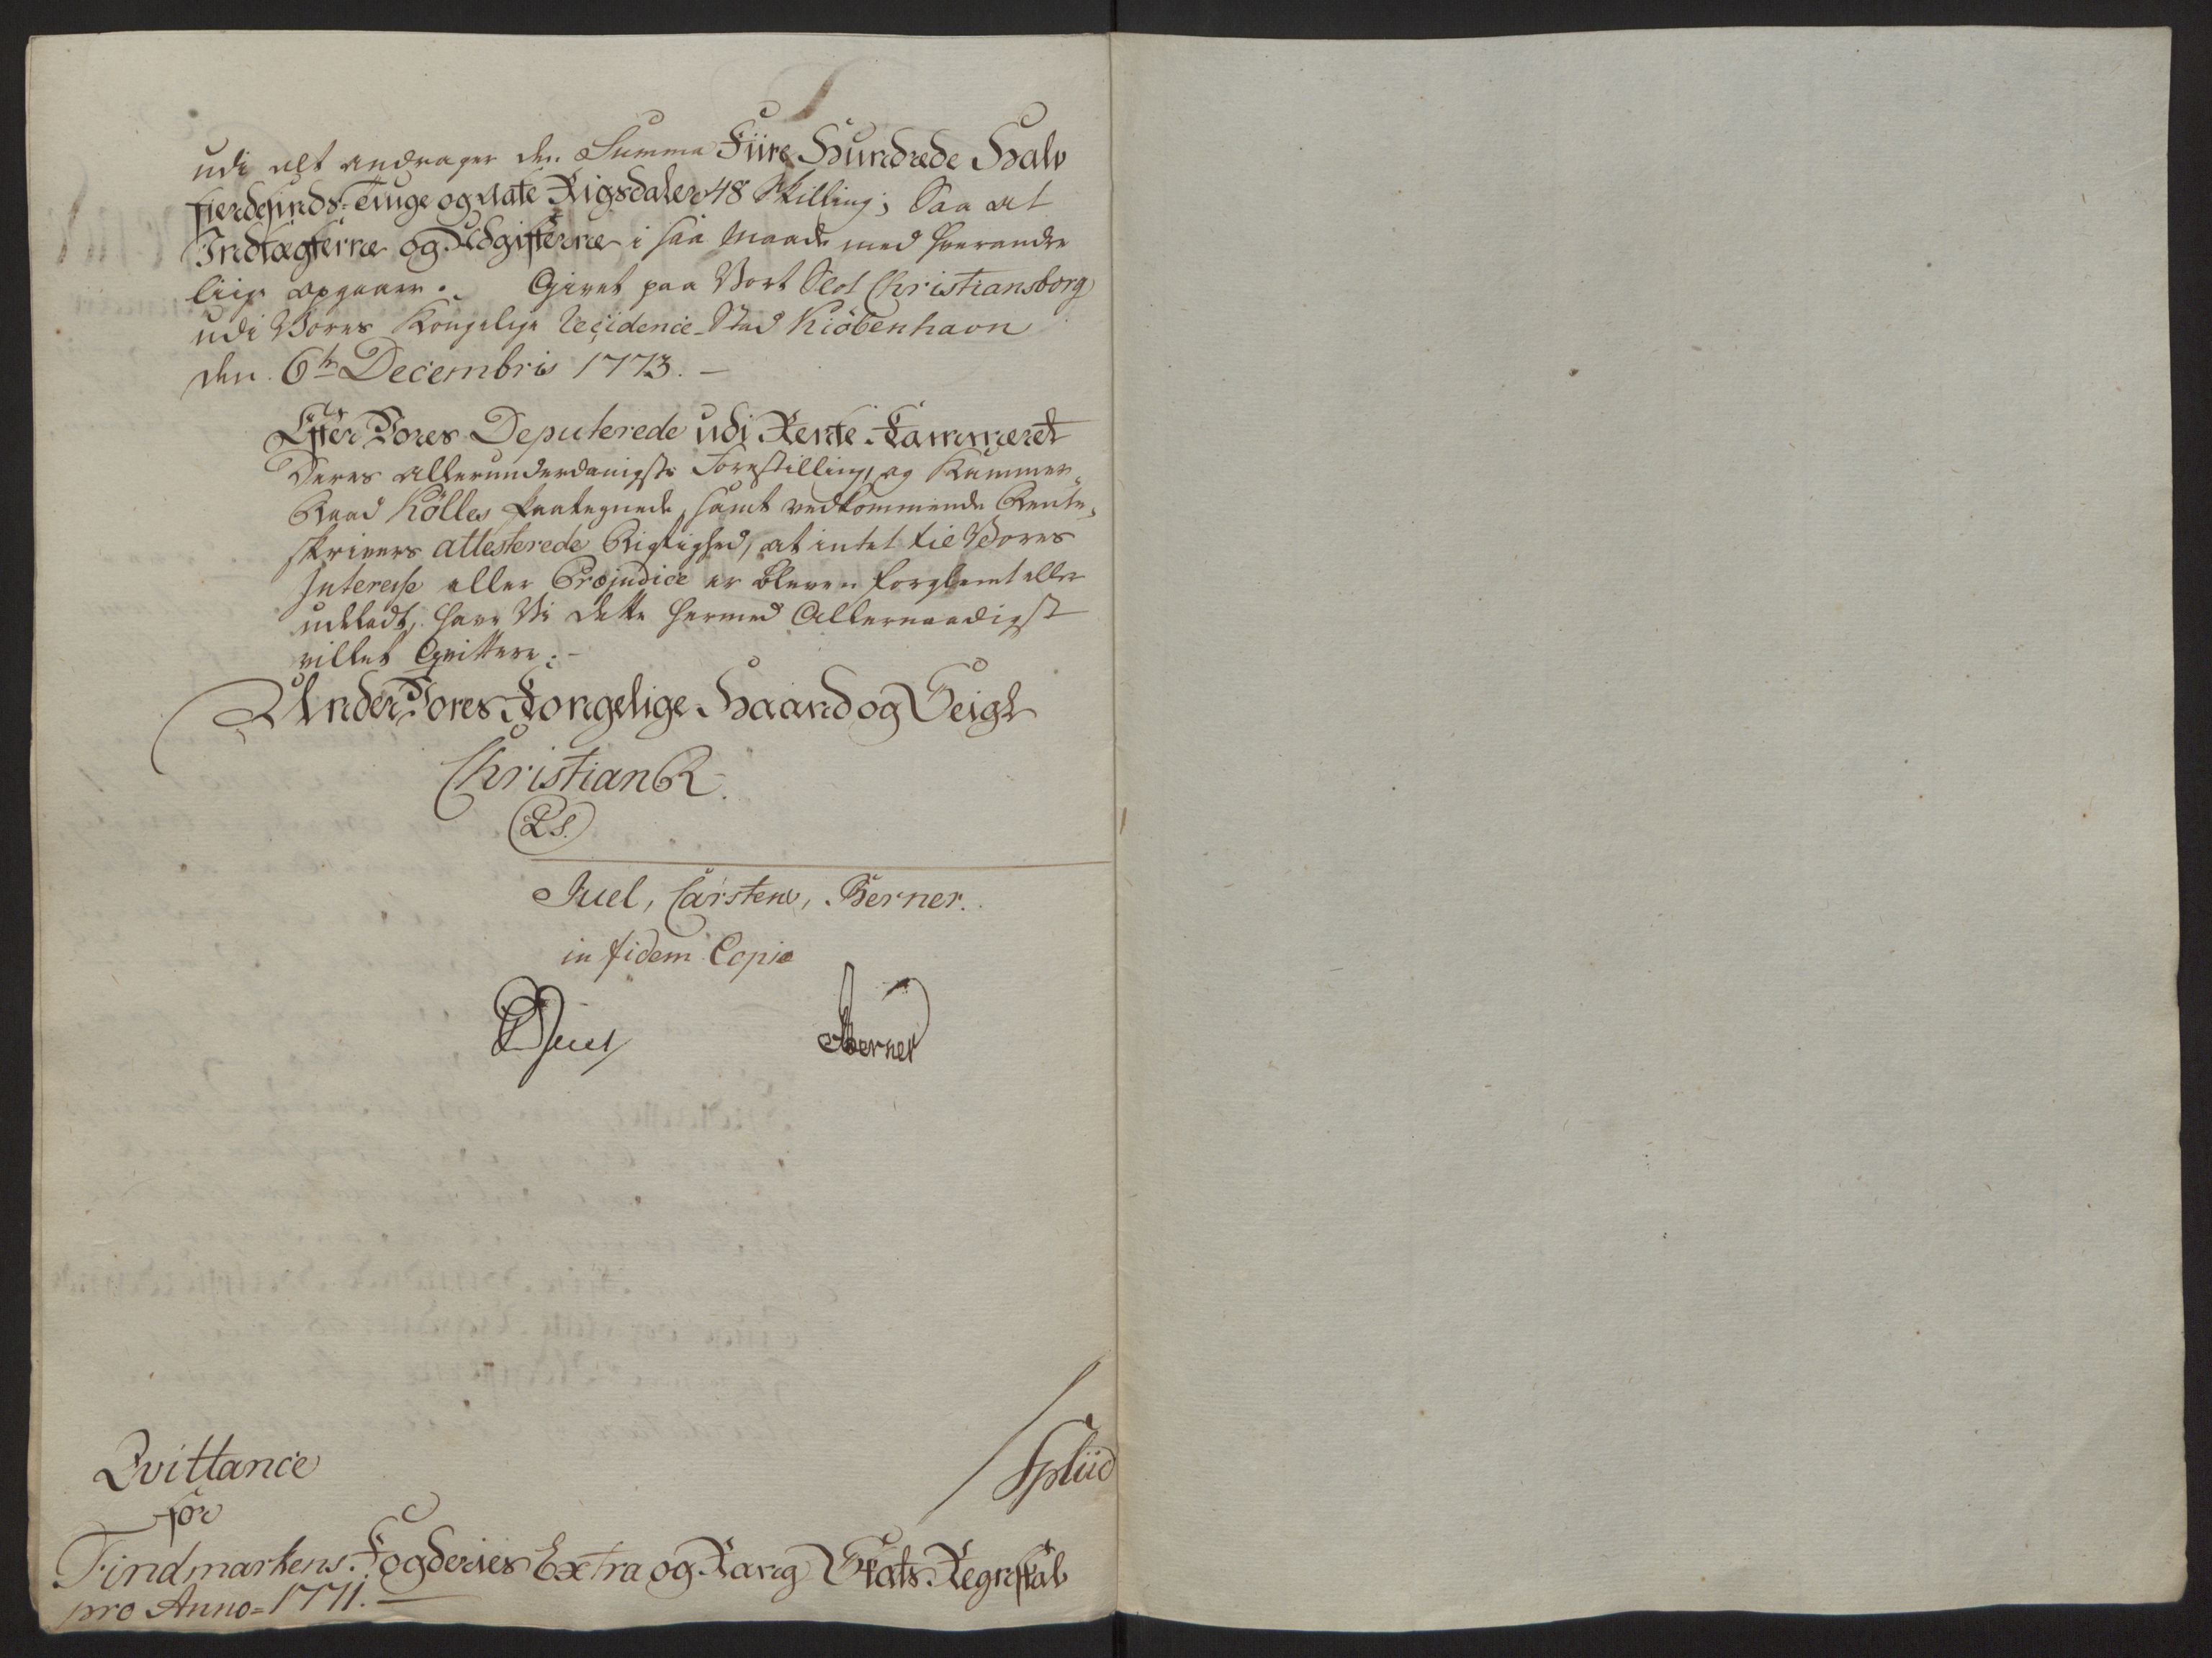 udi alt andrager den Summa Fiire Hundrede Halv
fierdesinds-Tiuge og Aatte Rigsdaler 48 Skilling; Saa at
Indtægterne og Udgifterne i saa Maade med hverandre
liige opgaaer. Givet paa Vort Slot Christiansborg
udi Vores Kongelige Recidence-Stad Kiöbenhavn
den 6te Decembris 1773.-
Efter Vores Deputerede udi Rente-Kammeret
Deres allerunderdanigste Forestilling, og Kammer-
Raad Kölles paategnede, samt vedkommende Rente-
skrivers attesterede Rigtighed, at intet til Vores
Interesse eller Præjudice er bleven forglemt eller
udeladt, have Vi dette hermed Allernaadigst
villet Qvittere:-
Under Vores Kongelige Haand og Seigl
Christian R.
(LS.)
Juel, Carstens, Berner.
in fidem Copiæ
Juel Berner
Qvittance
for
Findmarkens Fogderies Extra og Rang Skats Regnskab
pro Anno=1771.-